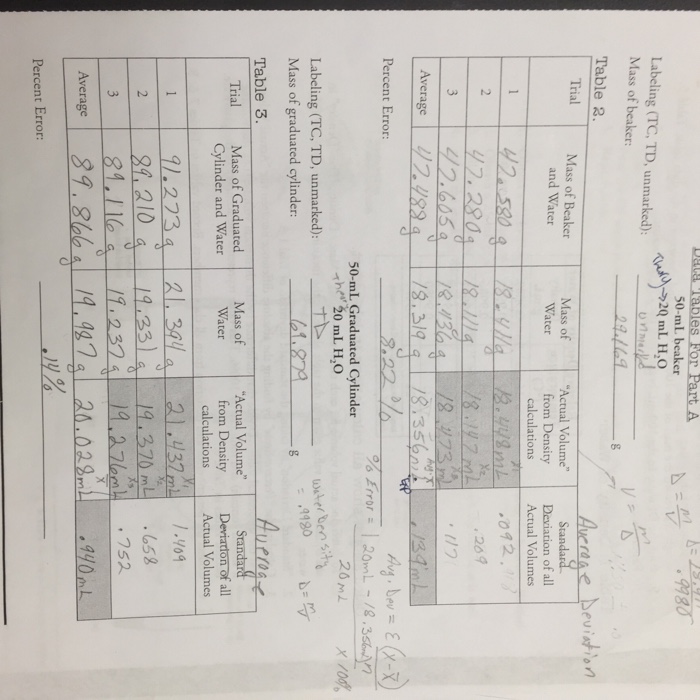 Data Tables For Part A
50-mL beaker
20 mL H₂O
D = m/V
.9980
Labeling (TC, TD, unmarked): unmarked
Mass of beaker: 29.169 g
V = m/D
Table 2.
Average Deviation
Trial
Mass of Beaker and Water
Mass of Water
"Actual Volume" from Density calculations
Standard Deviation of all Actual Volumes
1 47.580 g 18.411 g 18.448 mL .092
2 47.280 g 18.111 g 18.147 mL .209
3 47.605 g 18.436 g 18.473 mL .117
Average 47.488 g 18.319 g 18.356 mL .139 mL
Percent Error: 8.22 %
Avg. Dev = Σ(x-x̄)/n
% Error = |20mL - 18.356mL| / 20mL x 100%
50-mL Graduated Cylinder
20 mL H₂O
Labeling (TC, TD, unmarked): TD
Mass of graduated cylinder: 69.879 g
water Density = .9980
D = m/V
Table 3.
Average
Trial
Mass of Graduated Cylinder and Water
Mass of Water
"Actual Volume" from Density calculations
Standard Deviation of all Actual Volumes
1 91.273 g 21.394 g 21.437 mL 1.409
2 89.210 g 19.331 g 19.370 mL .658
3 89.116 g 19.237 g 19.276 mL .752
Average 89.866 g 19.987 g 20.028 mL .940 mL
Percent Error: .14 %